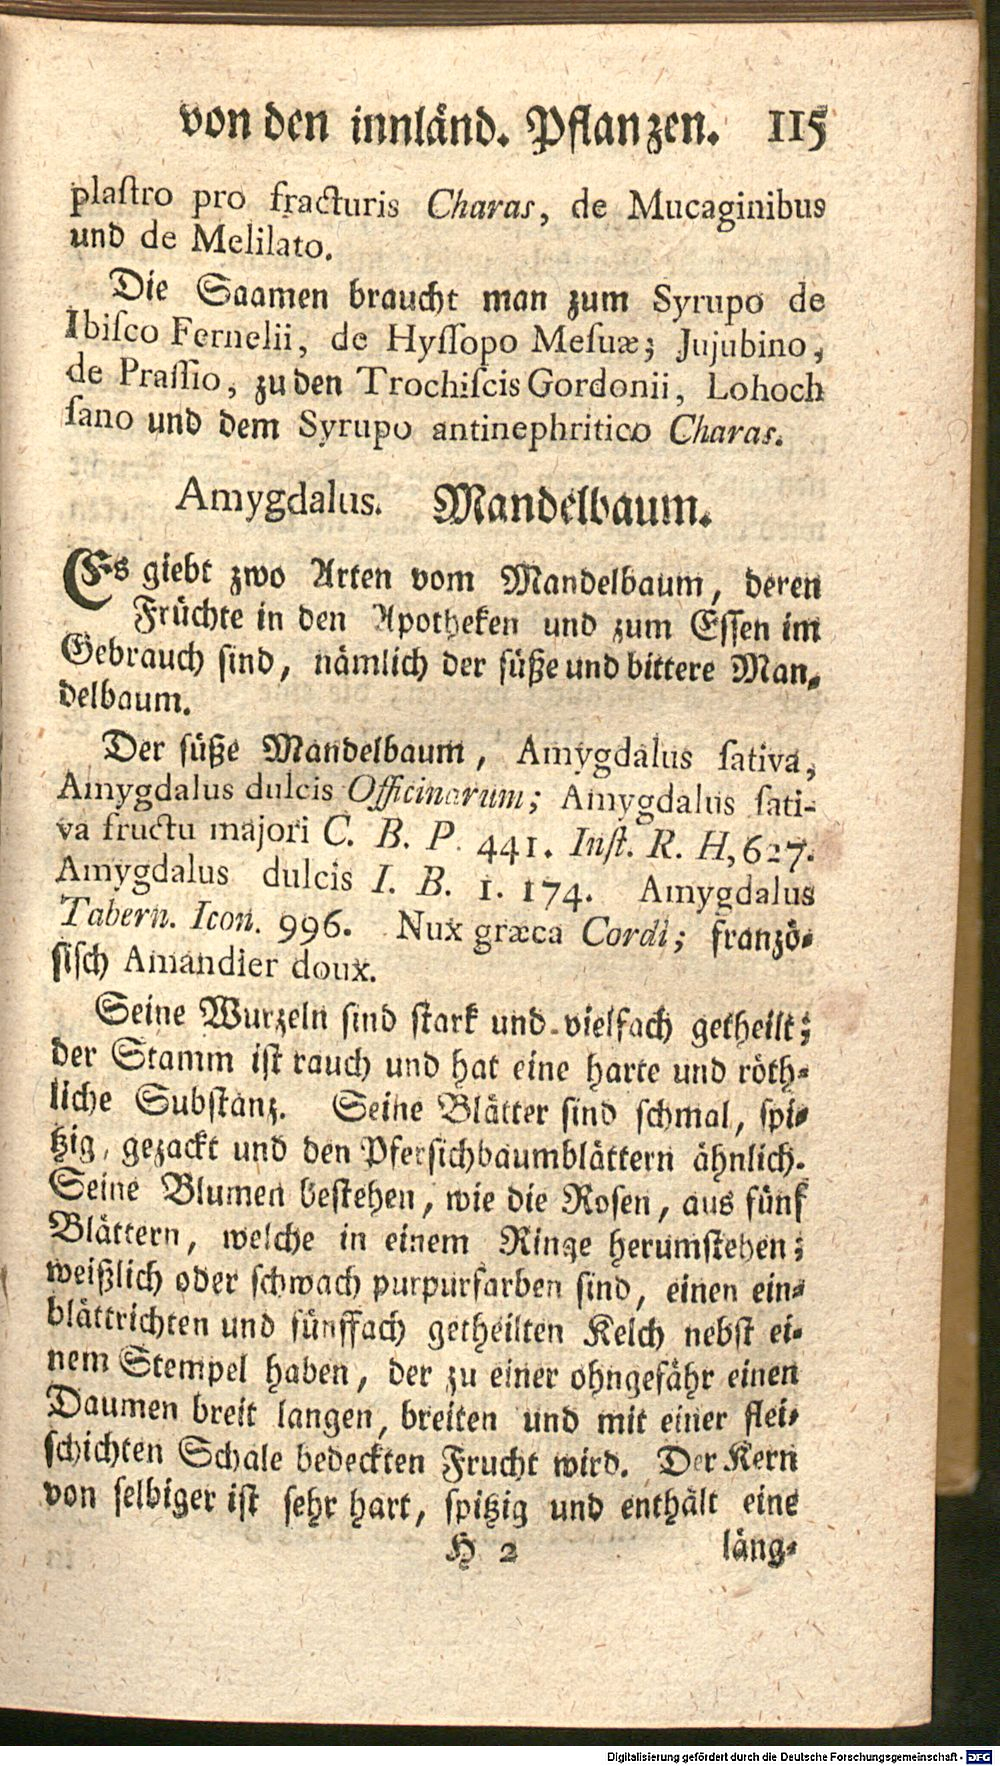 von den innländ. Pflanzen. 115
plaſtro pro fracturis Charas, de Mucaginibus
und de Melilato.
Die Saamen braucht man zum Syrupo de
Ibiſco Fernelii, de Hyſſopo Meſuæ; Jujubino,
de Praſſio, zu den Trochiſcis Gordonii, Lohoch
ſano und dem Syrupo antinephritico Charas.
Amygdalus. Mandelbaum.
Es giebt zwo Arten vom Mandelbaum, deren
Früchte in den Apotheken und zum Eſſen im
Gebrauch ſind, nämlich der ſüße und bittere Man-
delbaum.
Der ſüße Mandelbaum, Amygdalus ſativa,
Amygdalus dulcis Officinarum; Amygdalus ſati-
va fructu majori C. B. P. 441. Inſt. R. H, 627.
Amygdalus dulcis I. B. 1. 174. Amygdalus
Tabern. Icon. 996. Nux græca Cordi; franzö-
ſiſch Amandier doux.
Seine Wurzeln ſind ſtark und vielfach getheilt;
der Stamm iſt rauch und hat eine harte und röth-
liche Subſtanz. Seine Blätter ſind ſchmal, ſpi-
tzig, gezackt und den Pferſichbaumblättern ähnlich.
Seine Blumen beſtehen, wie die Roſen, aus fünf
Blättern, welche in einem Ringe herumſtehen;
weißlich oder ſchwach purpurfarben ſind, einen ein-
blättrichten und fünffach getheilten Kelch nebſt ei-
nem Stempel haben, der zu einer ohngefähr einen
Daumen breit langen, breiten und mit einer flei-
ſchichten Schale bedeckten Frucht wird. Der Kern
von ſelbiger iſt ſehr hart, ſpitzig und enthält eine
H 2 läng-
Digitalisierung gefördert durch die Deutsche Forschungsgemeinschaft - DFG